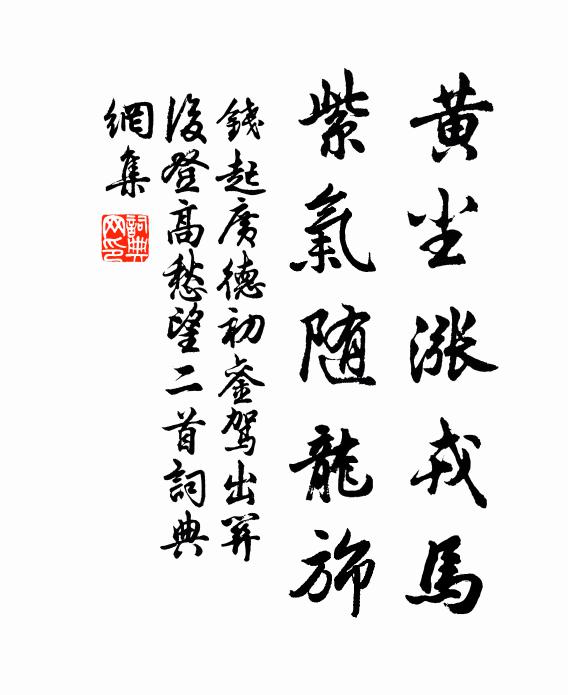 黄尘涨戎馬
紫氣随龍旆
錢起廣德初鑾駕出關
後登高愁望二首詞典
網集
詞典
网印